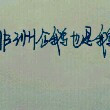 非洲企鹅也是我